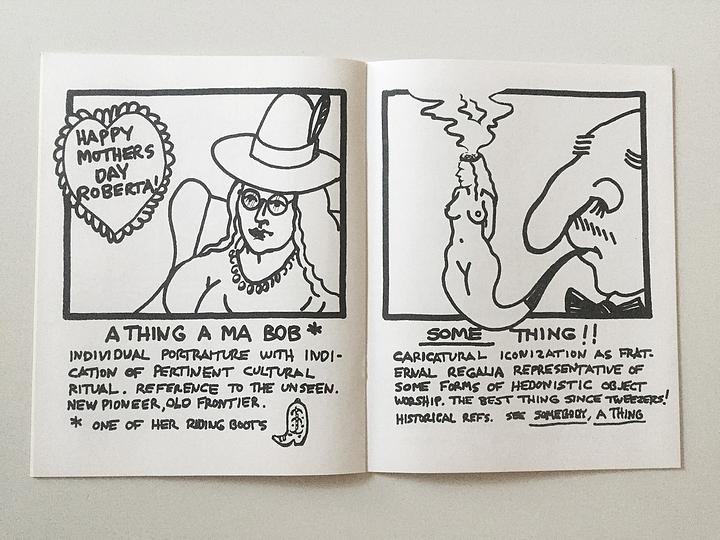 HAPPY
MOTHERS
DAY
ROBERTA!
A THING A MA BOB *
INDIVIDUAL PORTRAITURE WITH INDI-
CATION OF PERTINENT CULTURAL
RITUAL. REFERENCE TO THE UNSEEN.
NEW PIONEER, OLD FRONTIER.
* ONE OF HER RIDING BOOTS
SOME THING!!
CARICATURAL ICONIZATION AS FRAT-
ERNAL REGALIA REPRESENTATIVE OF
SOME FORMS OF HEDONISTIC OBJECT
WORSHIP. THE BEST THING SINCE TWEEZERS!
HISTORICAL REFS. SEE SOMEBODY, A THING